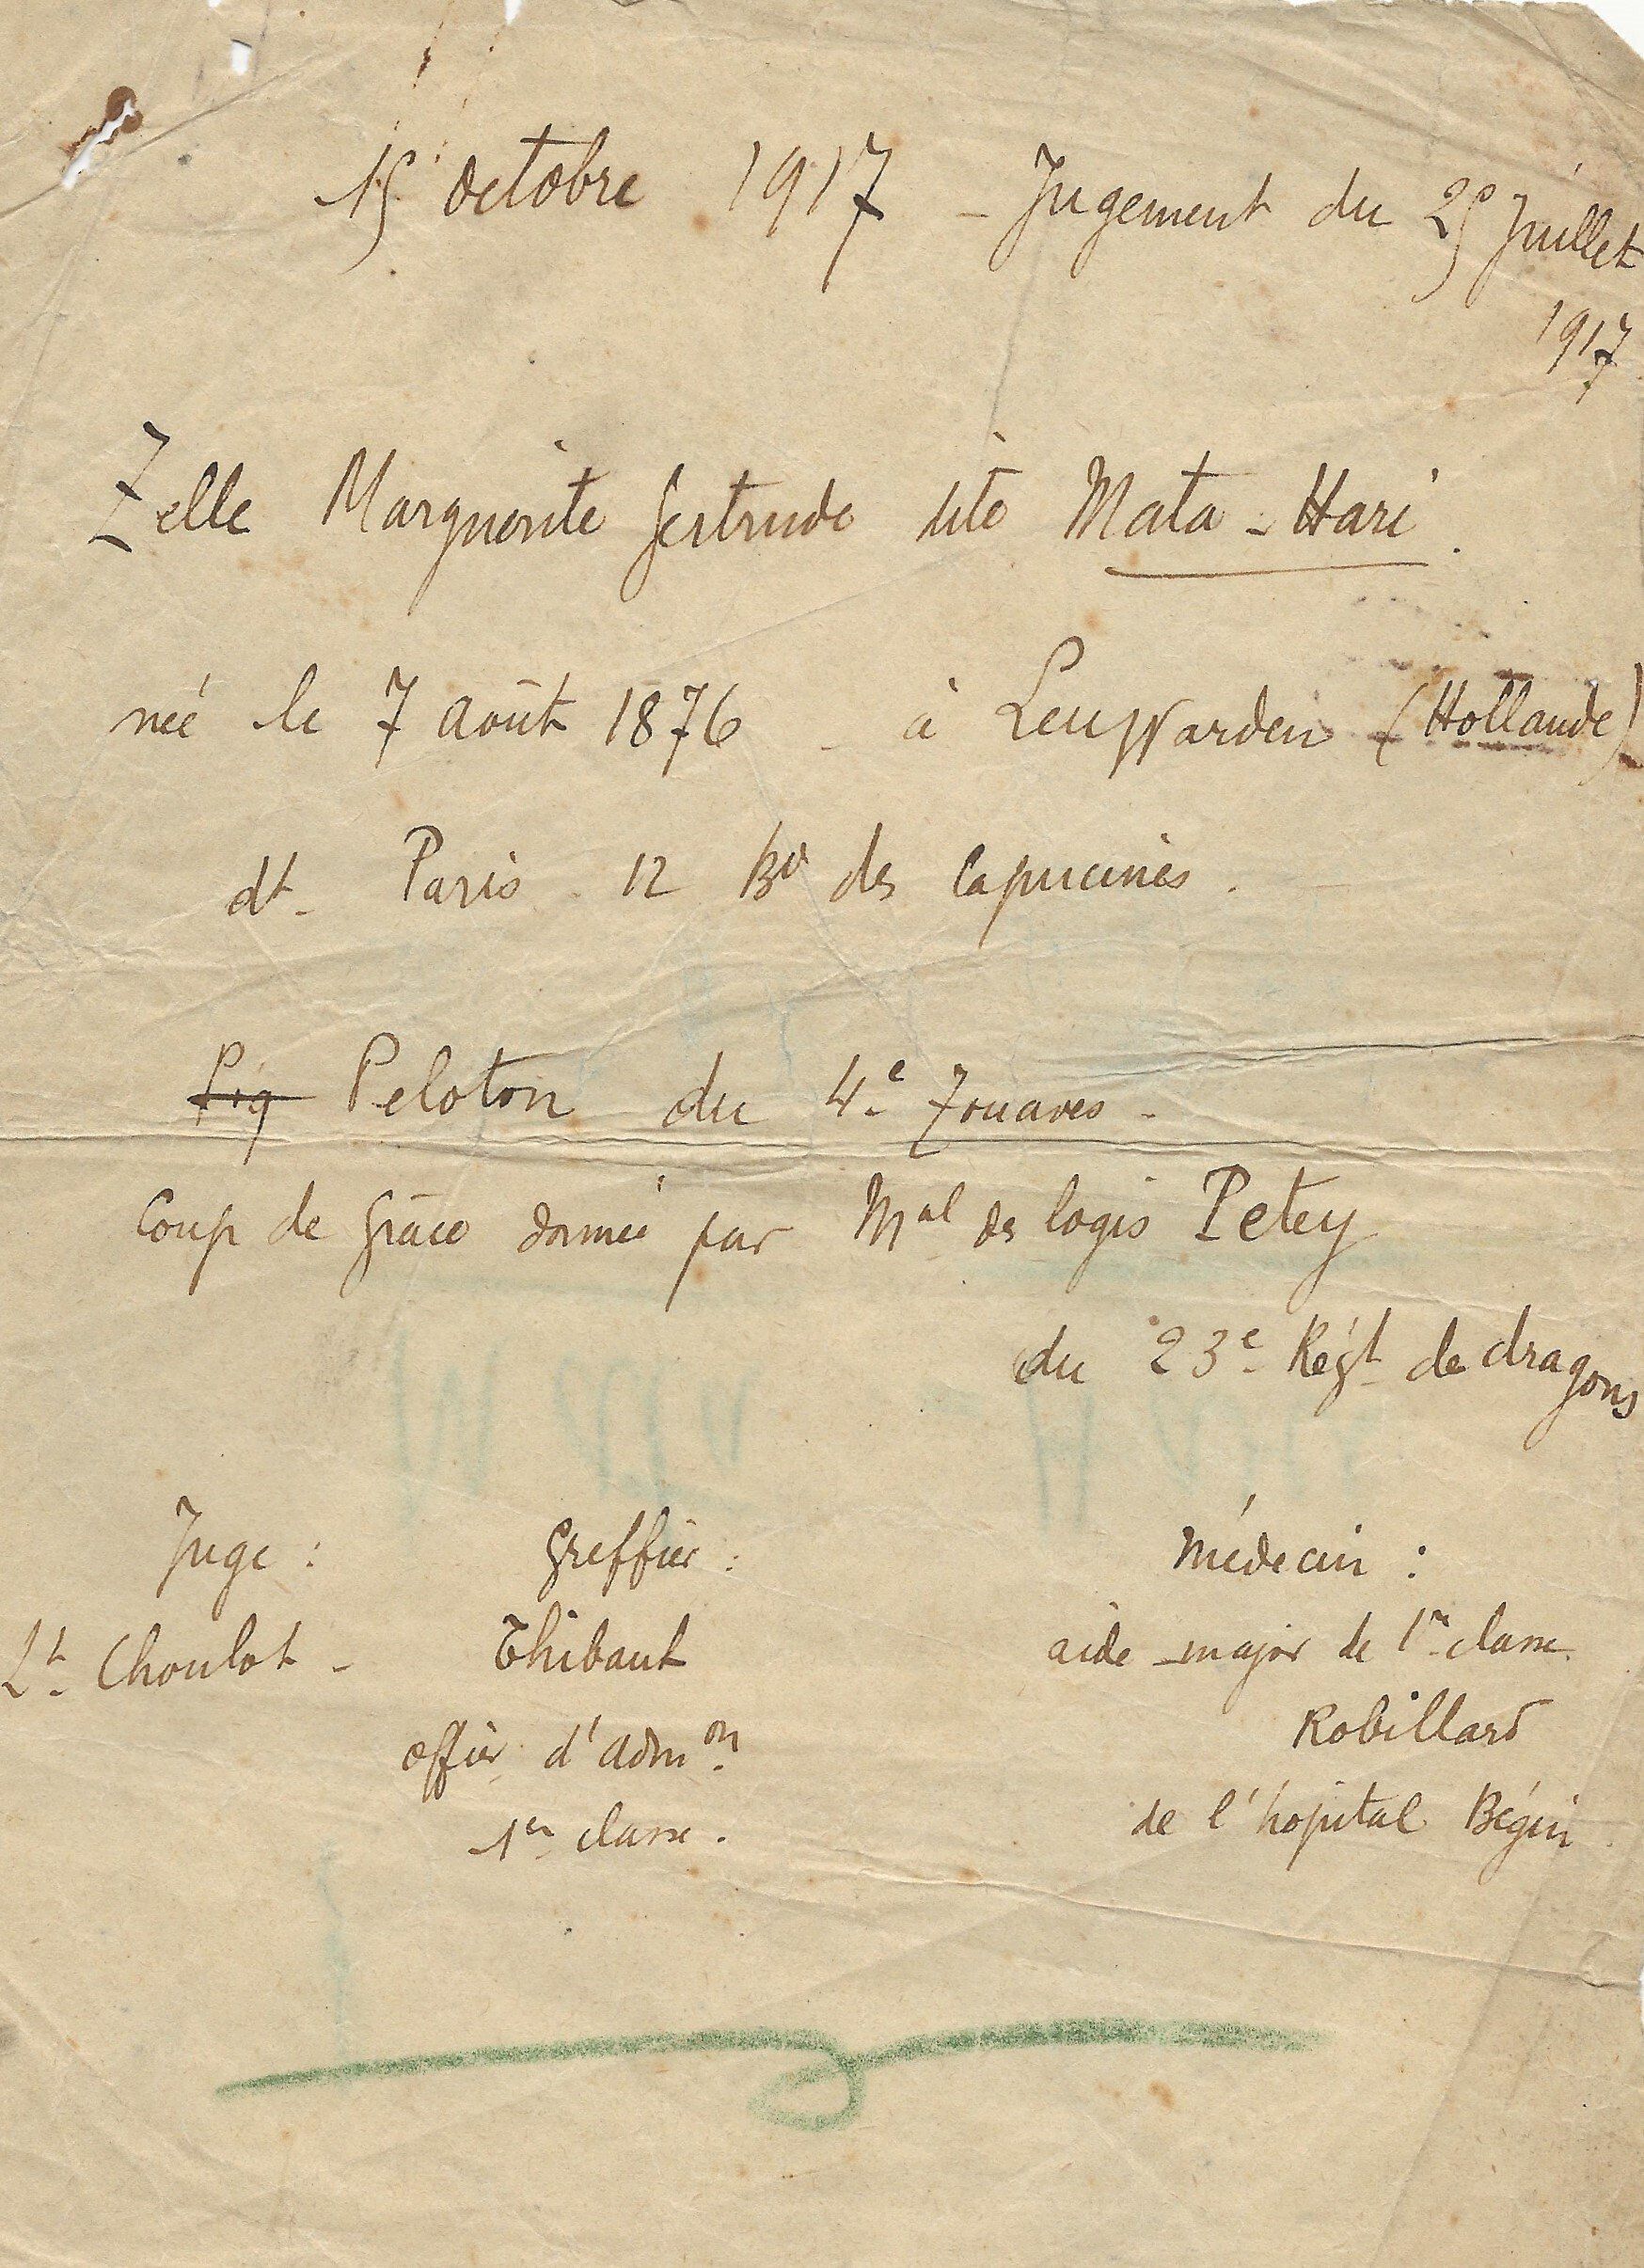 15 octobre 1917 - Jugement du 25 Juillet
1917
Zelle Marguerite Gertrude dite Mata-Hari.
née le 7 août 1876 - à Leuwarden (Hollande)
dt. Paris 12 Bd des Capucines.
Piq Peloton du 4e Zouaves -
Coup de grâce donné par Mal des logis Petey
du 23e Régt de dragons
Juge : Greffier : Médecin :
Lt Choulot - Thibaut aide-major de 1re classe
offier d'admon Robillard
1re classe. de l'hôpital Bégin